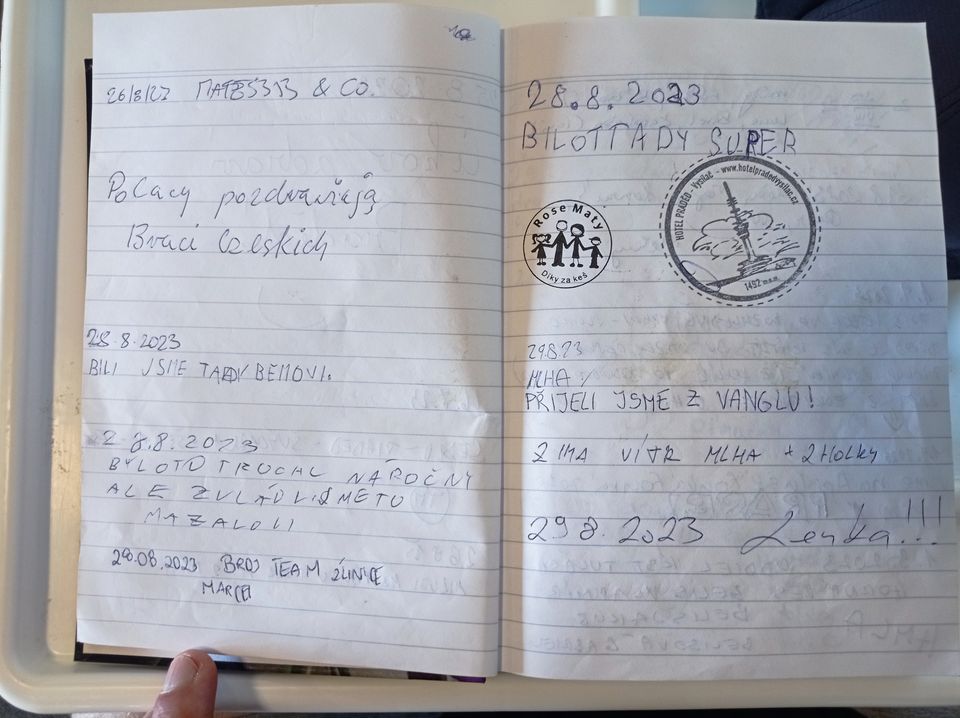 26/8/23 & CO.
Polacy pozdrawiają
Braci Czeskich
28.8.2023
BILI JSME TADY
28.8.2023
BYLOTO TROCHU NÁROČNÝ
ALE ZVLÁDLISMETO
MAZALOVI
28.08.2023 BROJ TEAM ŽLINICE
MARCEL
28.8.2023
BILOTTADY SUPER
Rose Maty
Díky za keš
HOTEL PRADĚD - Vysílač - www.hotelpradedvysilac.cz
1492 m.n.m.
29.8.23
MLHA
PŘIJELI JSME Z VANGLU!
ZIMA VÍTR MLHA + 2 HOLKY
29.8.2023 Lenka!!!